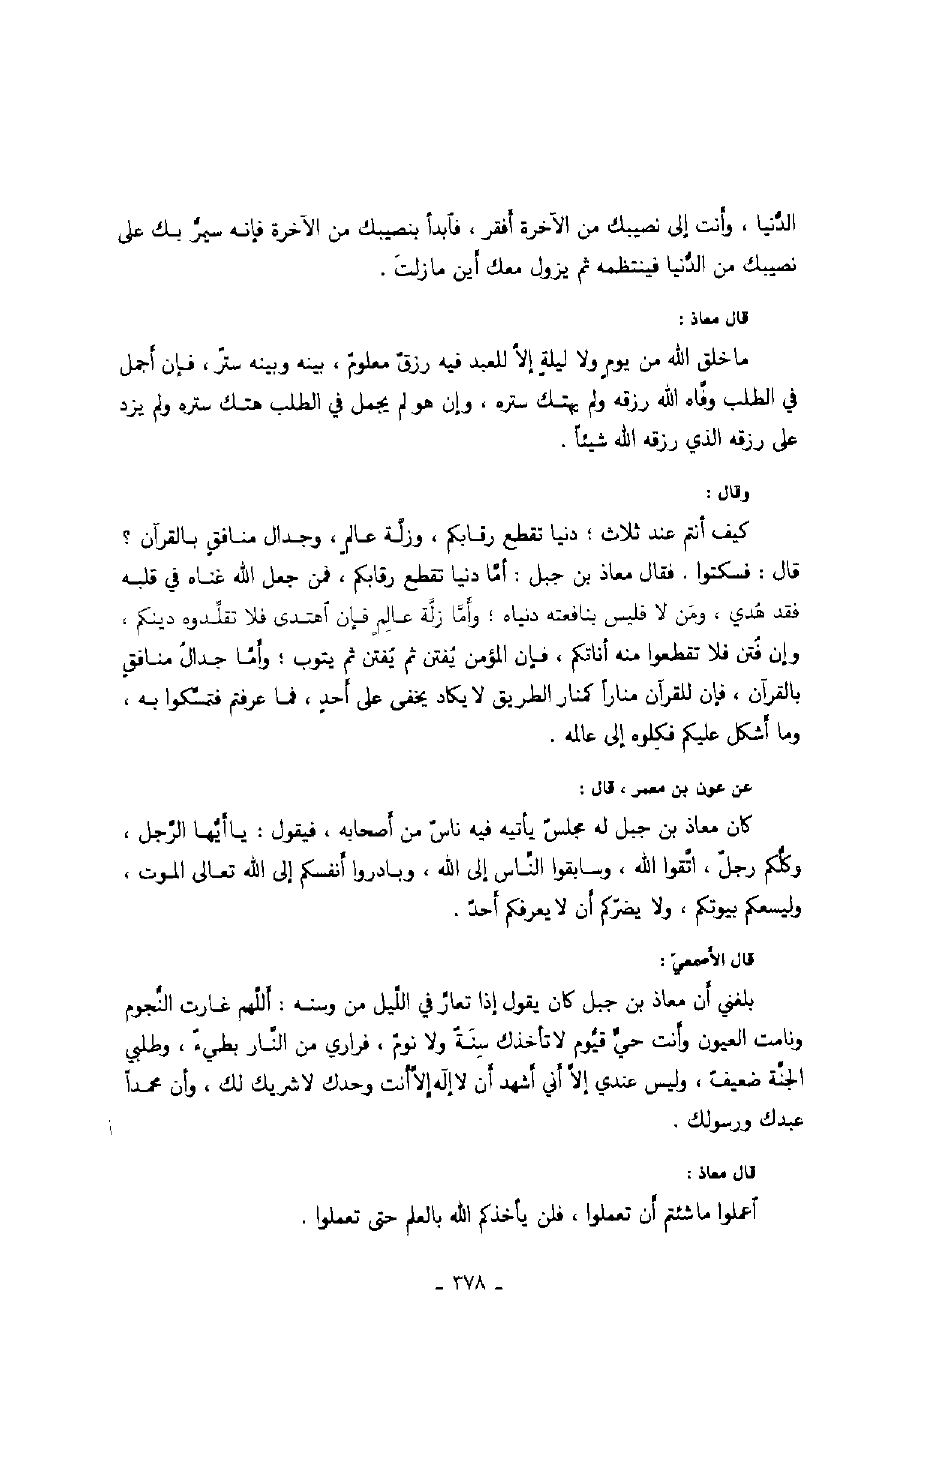 الدُّنيا ، وأنت إلى نصيبك من الآخرة أفقر ، فآبدأ بنصيبك من الآخرة فإنه سيمرُّ بك على
نصيبك من الدُّنيا فينتظمه ثم يزول معك أين مازلتَ .
قال معاذ :
ماخلق الله من يومٍ ولا ليلةٍ إلاّ للعبد فيه رزقٌ معلومٌ ، بينه وبينه سترٌ ، فإن أجمل
في الطلب وفّاه الله رزقه ولم يهتك ستره ، وإن هو لم يجمل في الطلب هتك ستره ولم يزد
على رزقه الذي رزقه الله شيئاً .
وقال :
كيف أنتم عند ثلاث ؛ دنيا تقطع رقابكم ، وزلّة عالمٍ ، وجدال منافقٍ بالقرآن ؟
قال : فسكتوا . فقال معاذ بن جبل : أمّا دنيا تقطع رقابكم ، فمن جعل الله غناه في قلبه
فقد هُدي ، ومَن لا فليس بنافعته دنياه ؛ وأمّا زلّة عالِمٍ فإن آهتدى فلا تقلّدوه دينكم ،
وإن فُتن فلا تقطعوا منه أناتكم ، فإن المؤمن يُفتن ثم يُفتن ثم يتوب ؛ وأمّا جدالُ منافقٍ
بالقرآن ، فإن للقرآن مناراً كمنار الطريق لا يكاد يخفى على أحدٍ ، فما عرفتم فتمسّكوا به ،
وما أشكل عليكم فكِلوه إلى عالمه .
عن عون بن معمر ، قال :
كان معاذ بن جبل له مجلسٌ يأتيه فيه ناسٌ من أصحابه ، فيقول : ياأيُّها الرَّجل ،
وكلُّكم رجلٌ ، اتَّقوا الله ، وسابقوا النَّاس إلى الله ، وبادروا أنفسكم إلى الله تعالى الموت ،
وليسعكم بيوتكم ، ولا يضرّكم أن لا يعرفكم أحدٌ .
قال الأصمعيّ :
بلغني أن معاذ بن جبل كان يقول إذا تعارّ في اللّيل من وسنه : أللّهم غارت النُّجوم
ونامت العيون وأنت حيٌّ قيُّوم لاتأخذك سِنَةٌ ولا نومٌ ، فراري من النَّار بطيءٌ ، وطلبي
الجنَّة ضعيفٌ ، وليس عندي إلاّ أني أشهد أن لاإله إلاّأنت وحدك لاشريك لك ، وأن محمداً
عبدك ورسولك .
قال معاذ :
آعملوا ماشئتم أن تعملوا ، فلن يأخذكم الله بالعلم حتى تعملوا .
- ٣٧٨ -